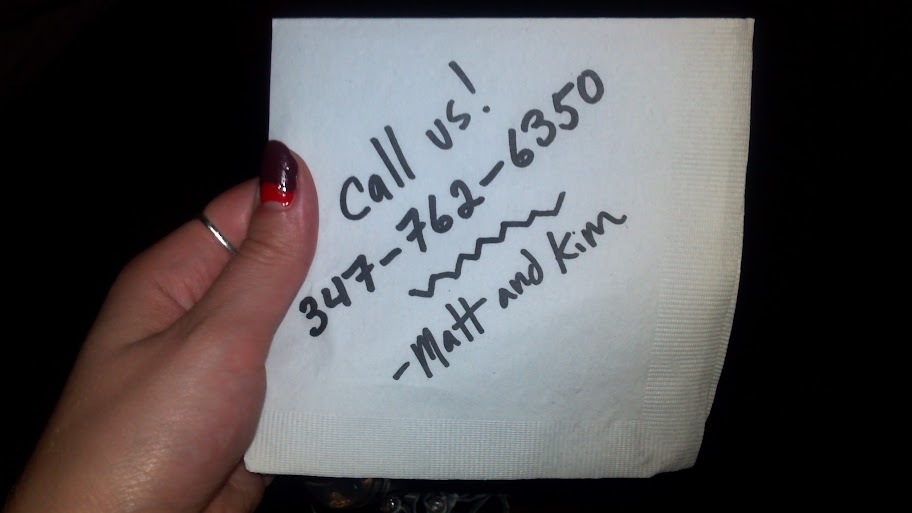 Call us!
347-762-6350
-Matt and Kim